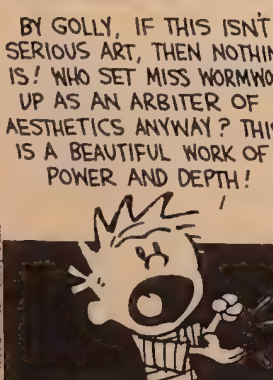 BY GOLLY, IF THIS ISN'T
SERIOUS ART, THEN NOTHIN
IS! WHO SET MISS WORMWO
UP AS AN ARBITER OF
AESTHETICS ANYWAY? THIS
IS A BEAUTIFUL WORK OF
POWER AND DEPTH!